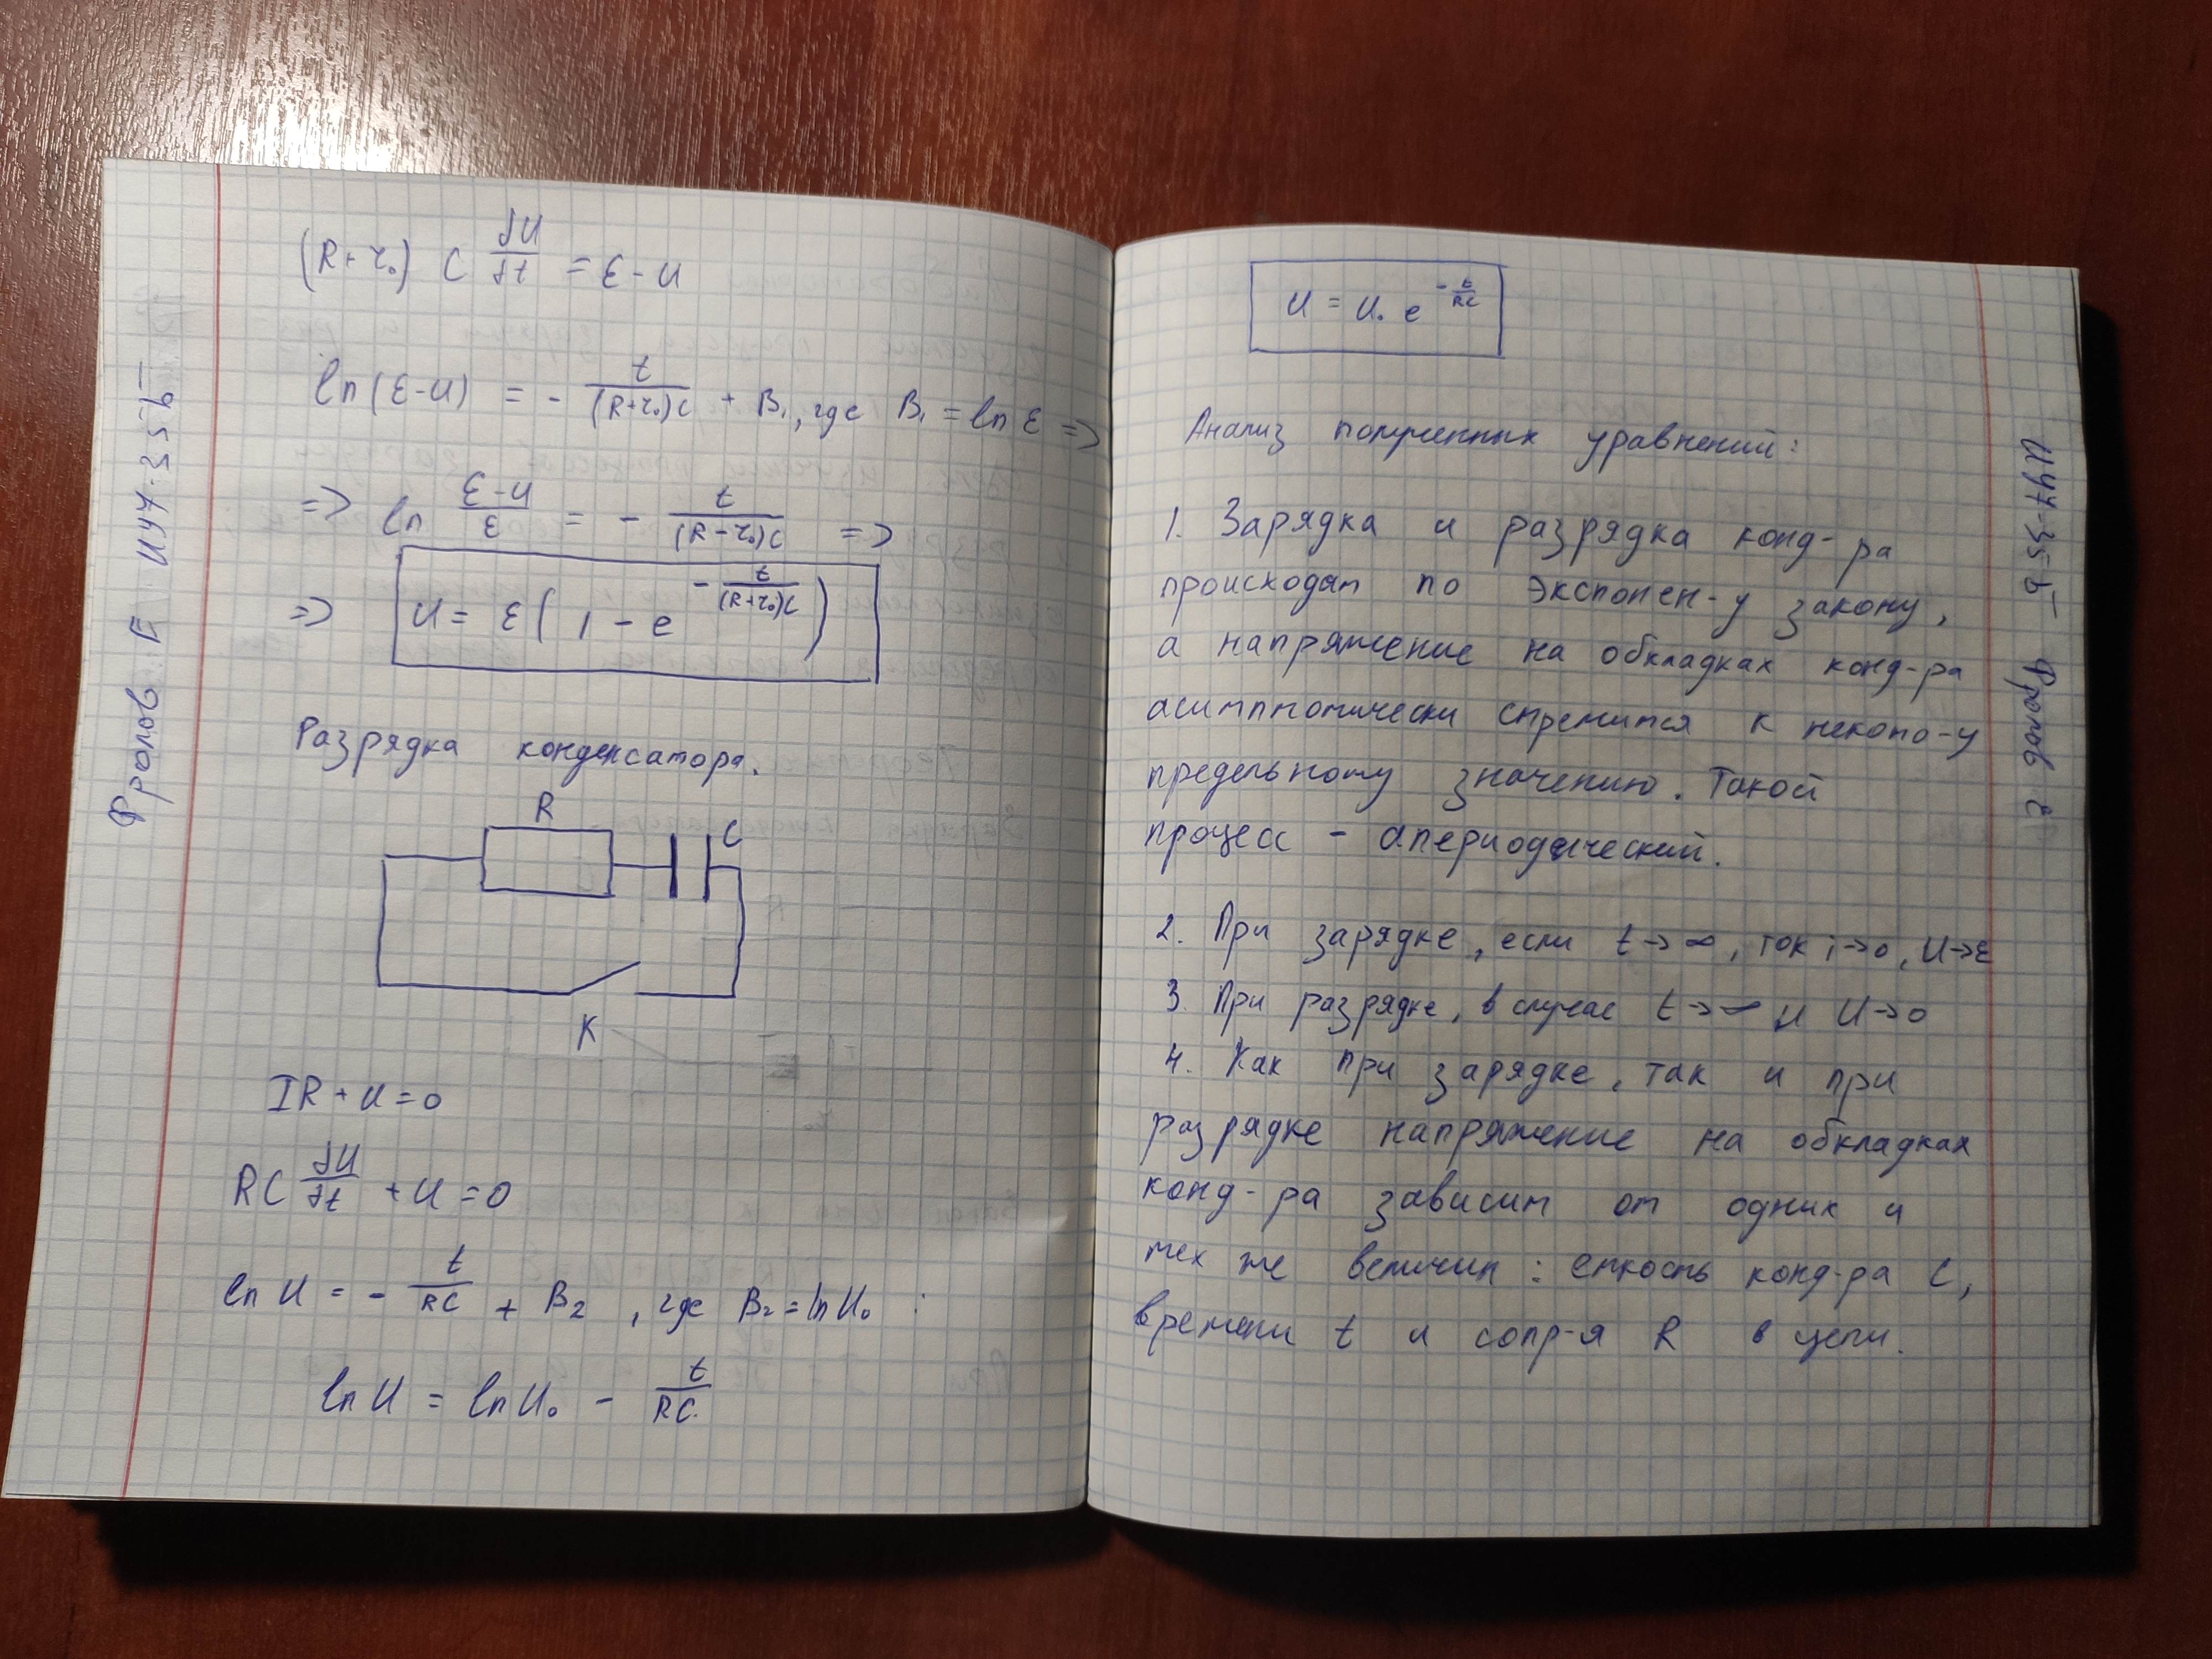 Фролов Е ИУ7-35Б
(R+r₀) C dU/dt = ε-U
ln(ε-U) = - t/((R+r₀)C) + B₁, где B₁ = ln ε =>
=> ln (ε-U)/ε = - t/((R-r₀)C) =>
=> U = ε(1 - e^(-t/((R+r₀)C)))
Разрядка конденсатора.
R
C
K
IR+U=0
RC dU/dt +U=0
ln U = - t/RC + B₂, где B₂=ln U₀ :
ln U = ln U₀ - t/RC.
U = U₀ e^(-t/RC)
Анализ полученных уравнений:
1. Зарядка и разрядка конд-ра
происходят по экспонен-у закону,
а напряжение на обкладках конд-ра
асимптотически стремится к некото-у
предельному значению. Такой
процесс - апериодический.
2. При зарядке, если t→∞, ток i→0, U→ε
3. При разрядке, в случае t→∞ и U→0
4. Как при зарядке, так и при
разрядке напряжение на обкладках
конд-ра зависит от одних и
тех же величин: емкость конд-ра C,
времени t и сопр-я R в цепи.
ИУ7-35Б Фролов Е